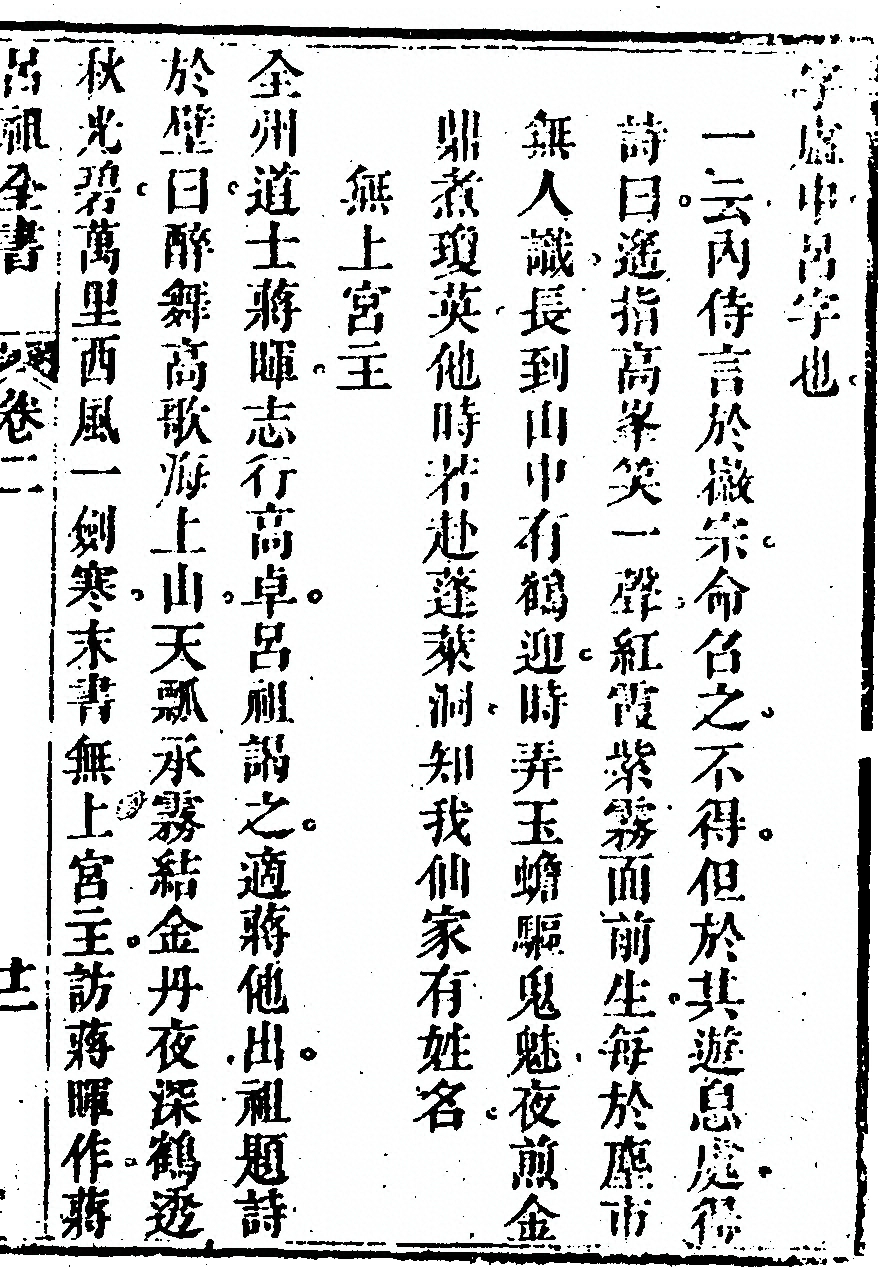 字處中呂字也
一云內侍言於徽宗命召之不得但於其遊息處得
詩曰遙指高峯笑一聲紅霞紫霧面前生每於塵市
無人識長到山中有鶴迎時弄玉蟾驅鬼魅夜煎金
鼎煮瓊英他時若赴蓬萊洞知我仙家有姓名
無上宮主
全州道士蔣暉志行高卓呂祖謁之適蔣他出祖題詩
於壁曰醉舞高歌海上山天瓢承霧結金丹夜深鶴透
秋光碧萬里西風一劍寒末書無上宮主訪蔣暉作蔣
呂祖全書 卷二 十二